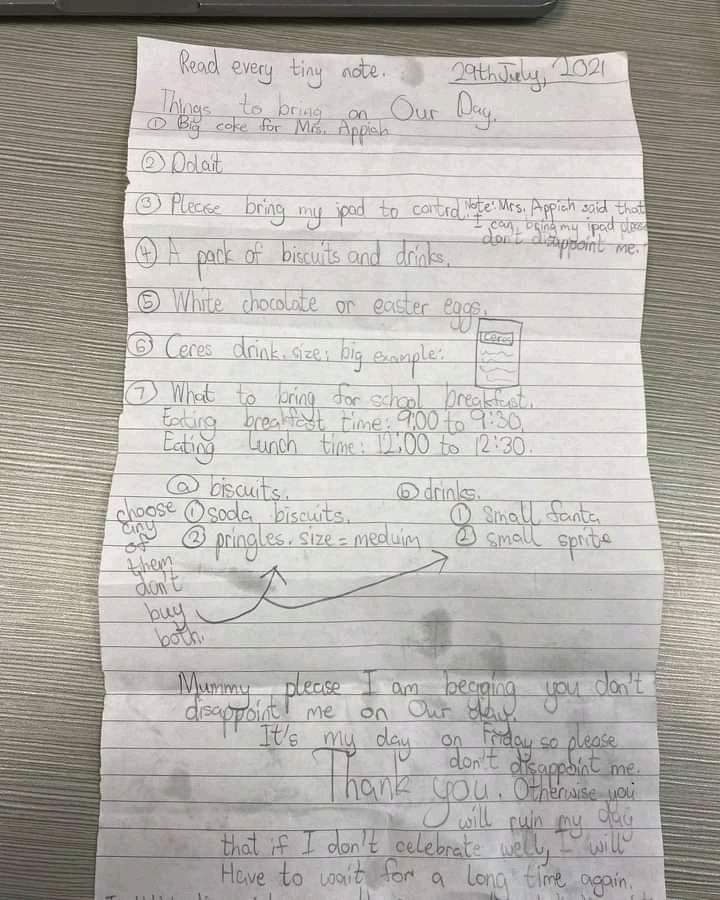 Read every tiny note. 29th July, 2021
Things to bring on Our Day.
① Big coke for Mrs. Appiah
② Dolait
③ Please bring my ipad to control. Note: Mrs. Appiah said that
I can bring my ipad please
don't disappoint me.
④ A pack of biscuits and drinks.
⑤ White chocolate or easter eggs.
⑥ Ceres drink. size: big example:
Ceres
⑦ What to bring for school breakfast.
Eating breakfast time: 9:00 to 9:30.
Eating lunch time: 12:00 to 12:30.
ⓐ biscuits. ⓑ drinks.
① soda biscuits. ① small fanta
② pringles. size = meduim ② small sprite
choose
any
of
them
don't
buy
both.
Mummy please I am begging you don't
disappoint me on Our day.
It's my day on Friday so please
don't disappoint me.
Thank you. Otherwise you
will ruin my day
that if I don't celebrate well, I will
Have to wait for a long time again.